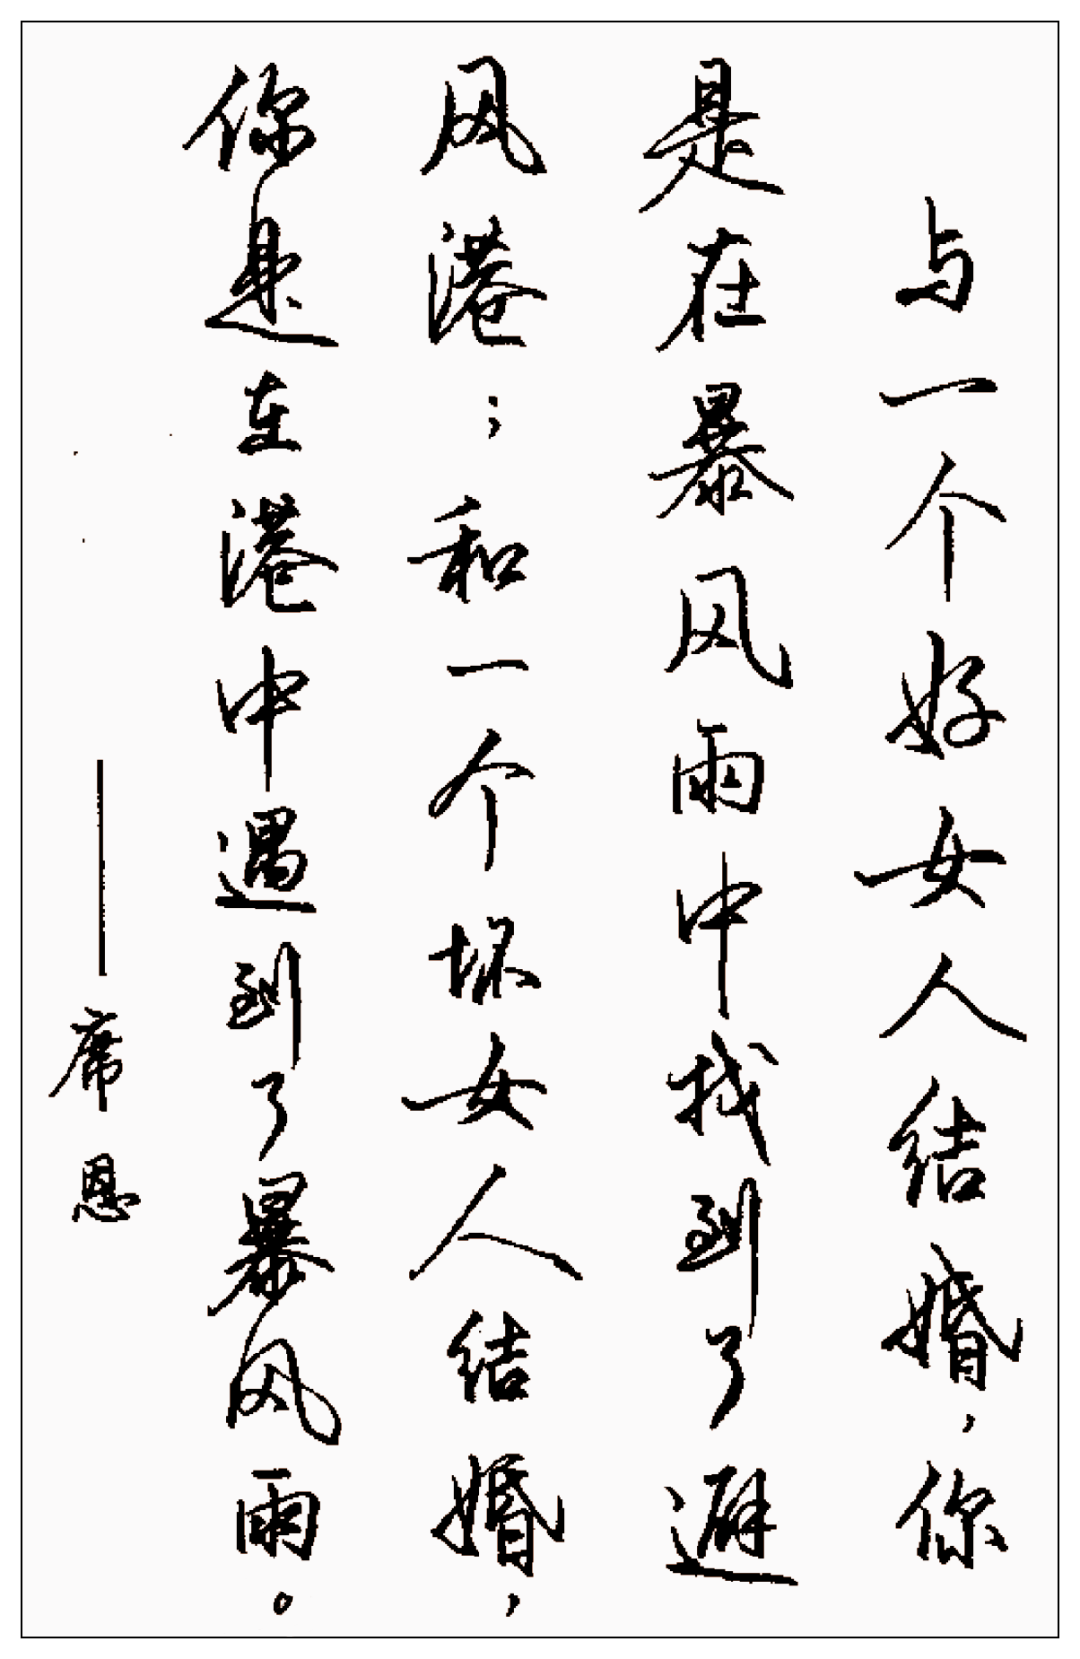 与一个好女人结婚，你
是在暴风雨中找到了避
风港；和一个坏女人结婚，
你是在港中遇到了暴风雨。
——席恩